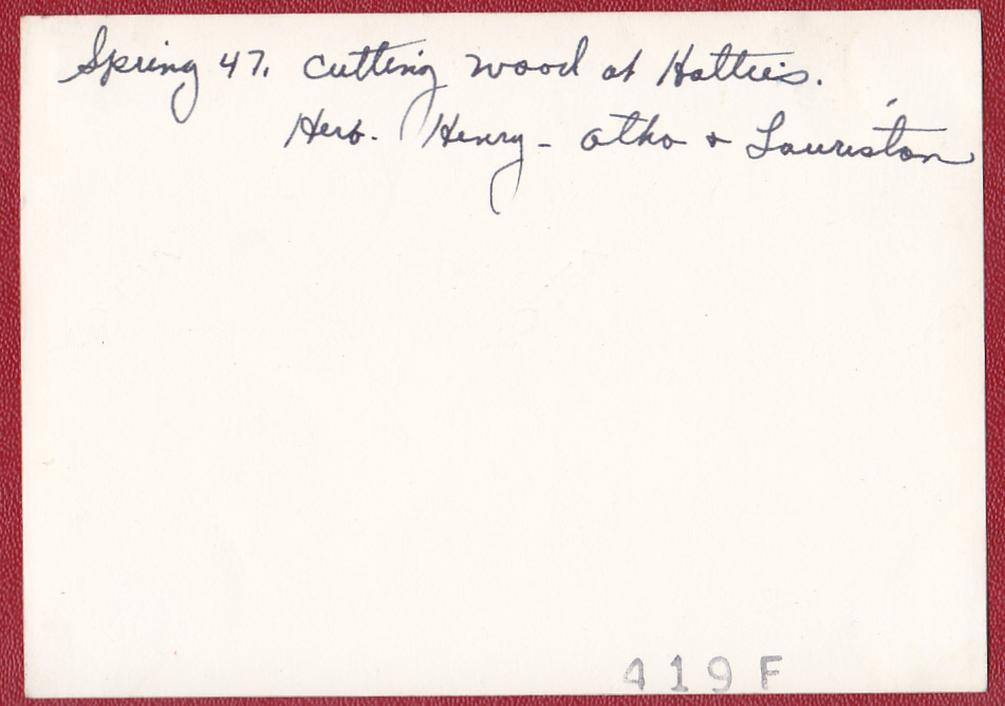 Spring 47. Cutting wood at Hattie's.
Herb. Henry - Otho & Lauriston
419F